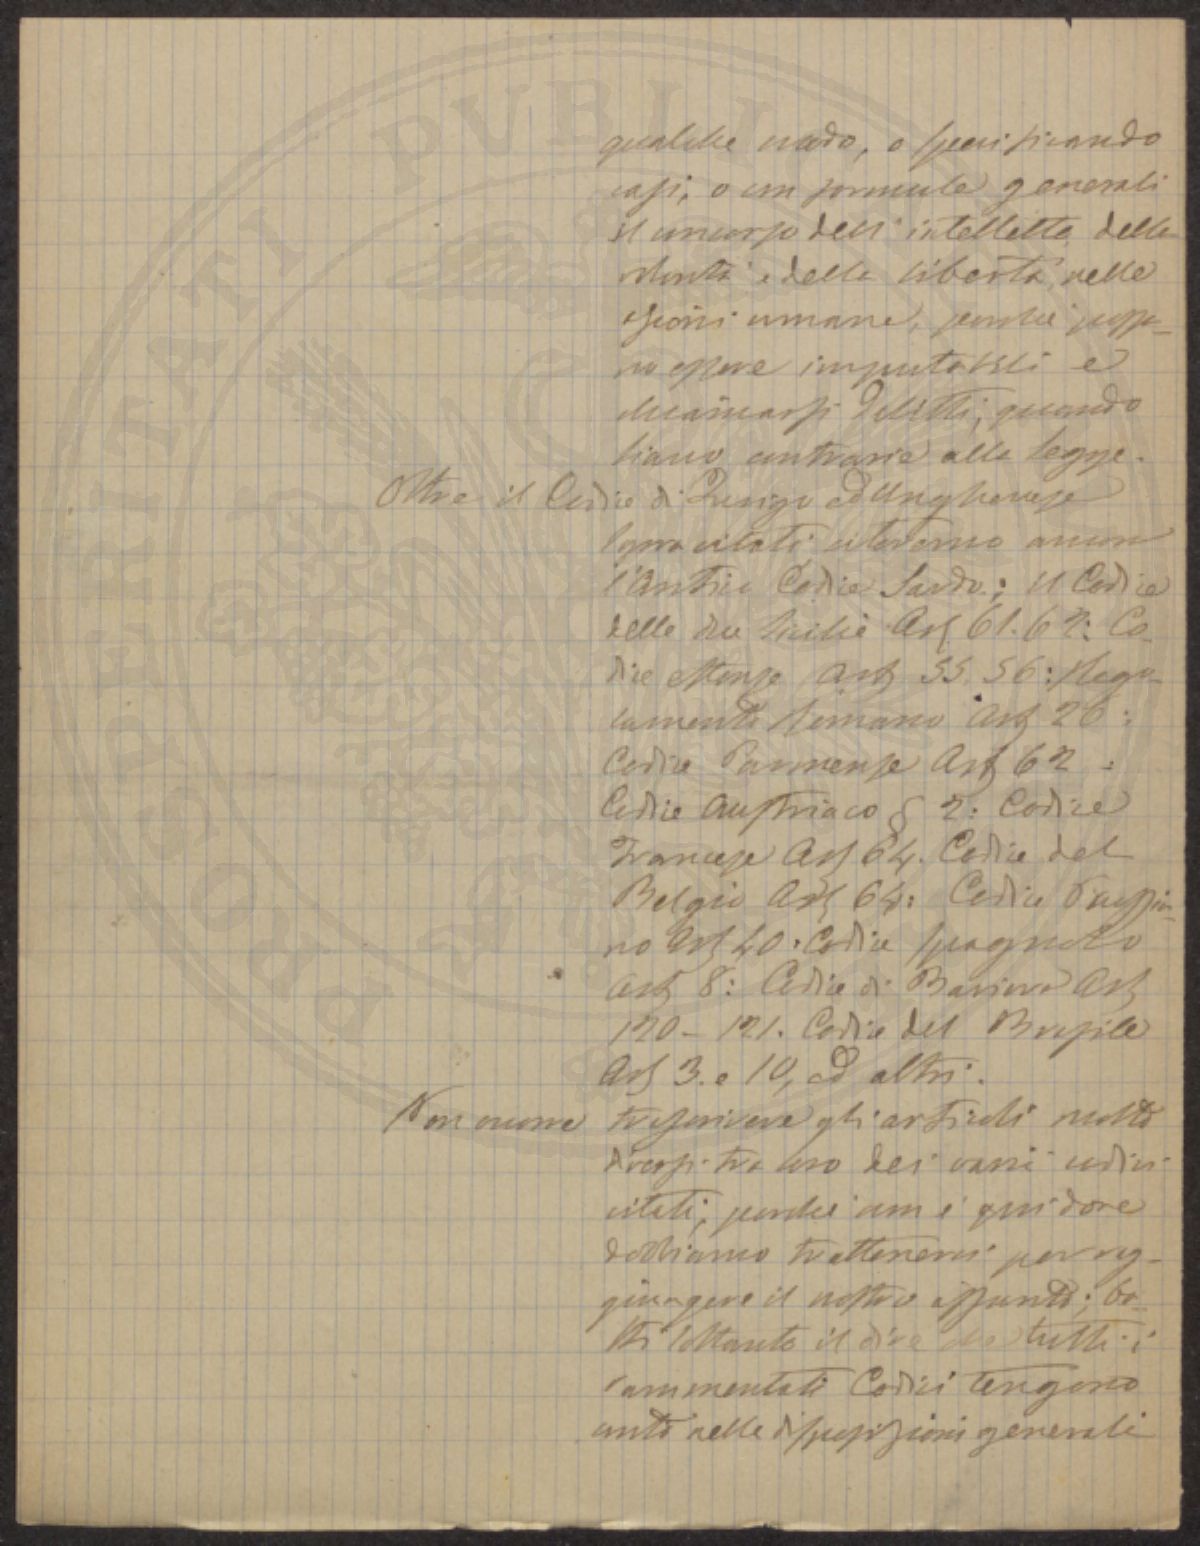 qualche modo, o specificando
casi, o con formule generali
il concorso dell'intelletto della
volontà e della libertà nelle
azioni umane, perché posso-
no essere imputabili e
chiamarsi delitti, quando
siano contrarie alla legge.
Oltre il Codice di Zurigo ed Ungherese
sopracitati citeremo ancora
l'antico Codice Sardo: il Codice
delle due Sicilie Art 61. 62: Co-
dice Estense Art 55. 56: Rego-
lamento Romano Art 26:
Codice Parmense Art 62:
Codice Austriaco § 2: Codice
Francese Art 64. Codice del
Belgio Art 64: Codice Prussia-
no Art 40: Codice spagnuolo
Art 8: Codice di Baviera Art
120 - 121. Codice del Brasile
Art 3. e 10, ed altri.
Non occorre trascrivere gli articoli molto
diversi tra loro dei varii codici
citati, perché non è qui dove
dobbiamo trattenerci per rag-
giungere il nostro assunto; ba-
sti soltanto il dire che tutti i
rammentati Codici tengono
conto nelle disposizioni generali
POSPERITATI PUBLI